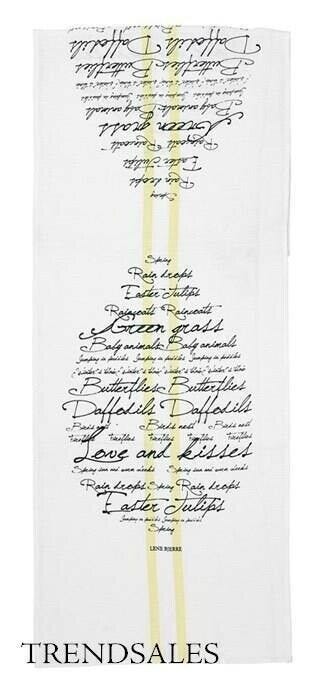 Daffodils Daffodils
Butterflies Butterflies
Baby animals Baby animals
Green grass
Raincoats Raincoats
Easter Tulips
Rain drops
Spring
Spring
Rain drops
Easter Tulips
Raincoats Raincoats
Green grass
Baby animals Baby animals
Jumping in puddles Jumping in puddles Jumping in puddles
Butterflies Butterflies
Daffodils Daffodils
Birds nest Birds nest Birds nest
Fireflies Fireflies Fireflies Fireflies
Love and kisses
Spring sun and warm winds Spring sun and warm winds
Rain drops Spring Rain drops
Easter Tulips
Jumping in puddles Jumping in puddles
Spring
LENE BJERRE
TRENDSALES